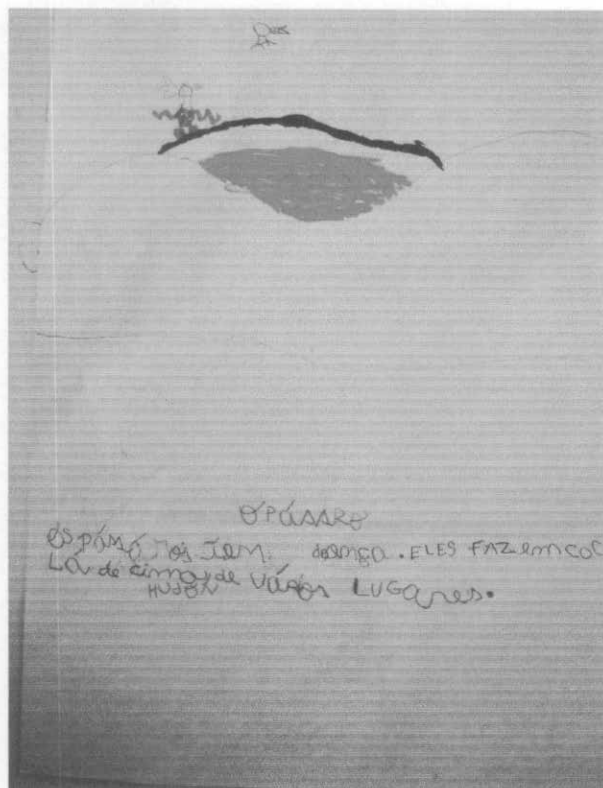 O PÁSARO
OS PÁMÁROS TEM doença. ELES FAZ em COC
LÁ de cima de VÁROS LUGares.
HUDSON